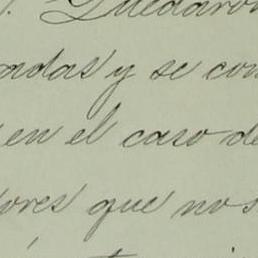 Quedaron
adas y se con
en el caso de
ores que nos